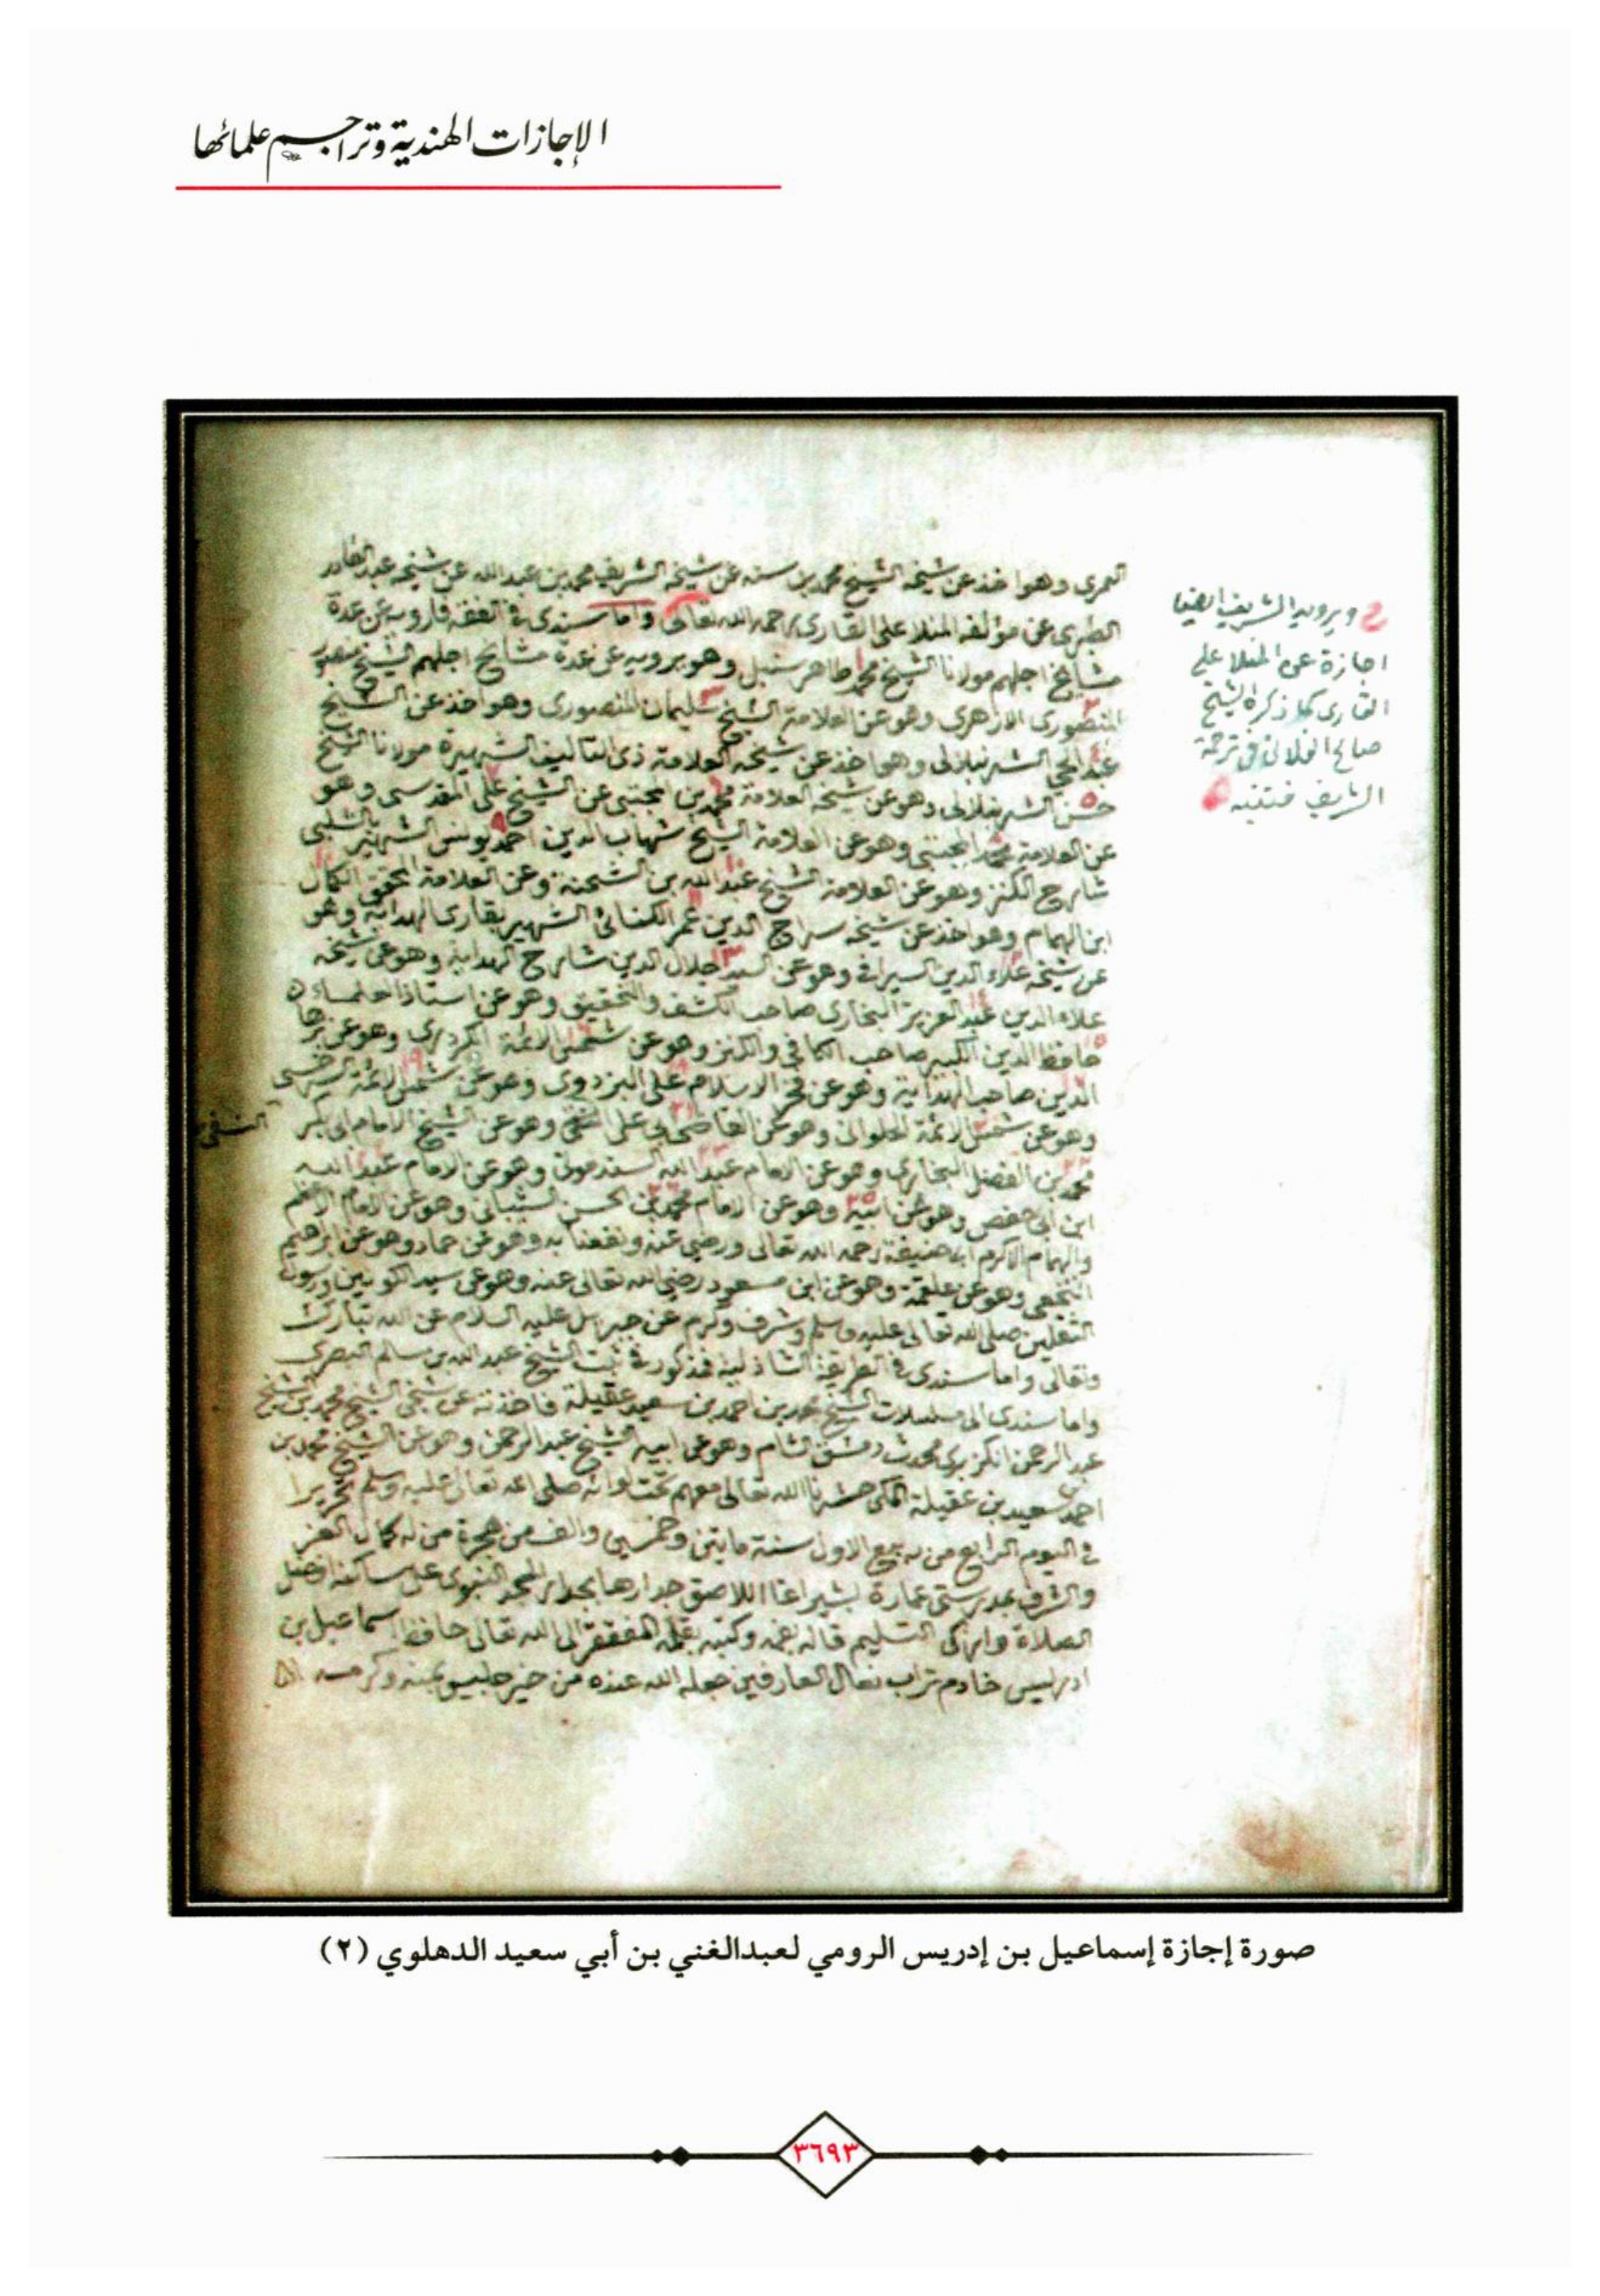 الإجازات الهندية وتراجم علمائها
العمرى وهو اخذ عن شيخه الشيخ محمد بن سنه عن شيخه الشريف محمد بن عبد الله عن شيخه عبد القادر
الطبرى عن مؤلفه المنلا على القارى رحمه الله تعالى واما سندى فى الفقه فارويه عن عدة
مشايخ اجلهم مولانا الشيخ محمد طاهر سنبل وهو يرويه عن عدة مشايخ اجلهم الشيخ
المنصورى الازهرى وهو عن العلامة الشيخ سليمان المنصورى وهو اخذ عن الشيخ
عبد الحى الشرنبلالى وهو اخذ عن شيخه العلامة ذى التآليف الشهيرة مولانا الشيخ
حسن الشرنبلالى وهو عن شيخه العلامة محمد بن المجتبى عن الشيخ على المقدسى وهو
عن العلامة محمد المجتبى وهو عن العلامة الشيخ شهاب الدين احمد يونس الشهير بالشلبى
شارح الكنز وهو عن العلامة الشيخ عبد الله بن الشحنة وعن العلامة المحقق الكمال
ابن الهمام وهو اخذ عن شيخه سراج الدين عمر الكنانى الشهير بقارى الهداية وهو
عن شيخه علاء الدين السيرافى وهو عن السيد جلال الدين شارح الهداية وهو عن شيخه
علاء الدين عبد العزيز البخارى صاحب الكشف والتحقيق وهو عن استاذ العلماء
حافظ الدين الكبير صاحب الكافى والكنز وهو عن شمس الائمة الكردرى وهو عن برهان
الدين صاحب الهداية وهو عن فخر الاسلام على البزدوى وهو عن شمس الائمة السرخسى
وهو عن شمس الائمة الحلوانى وهو عن القاضى ابى على النسفى وهو عن الشيخ الامام ابى بكر
النسفى
محمد بن الفضل البخارى وهو عن الامام عبد الله السندمونى وهو عن الامام عبد الله
ابن ابى حفص وهو عن ابيه وهو عن الامام محمد بن الحسن الشيبانى وهو عن الامام الاعظم
والهمام الاكرم ابى حنيفة رحمه الله تعالى ورضى عنه ونفعنا به وهو عن حماد وهو عن ابرهيم
النخعى وهو عن علقمة وهو عن ابن مسعود رضى الله تعالى عنه وهو عن سيد الكونين ورسول
الثقلين صلى الله تعالى عليه وسلم وشرف وكرم عن جبريل عليه السلام عن الله تبارك
وتعالى واما سندى فى الطريقة الشاذلية فمذكور فى ثبت الشيخ عبد الله بن سالم البصرى
واما سندى الى مسلسلات الشيخ محمد بن احمد بن سعيد عقيلة فاخذته عن شيخى الشيخ محمد بن الشيخ
عبد الرحمن الكزبرى محدث دمشق الشام وهو عن ابيه الشيخ عبد الرحمن وهو عن الشيخ محمد بن
احمد سعيد بن عقيلة المكى حشرنا الله تعالى معهم تحت لوائه صلى الله تعالى عليه وسلم تحريرا
فى اليوم الرابع من ربيع الاول سنة مايتين وخمسين والف من هجرة من له كمال العز
والشرف بمدرستى عمارة بشير اغا اللاصق جدارها بجدار المسجد النبوى على ساكنه افضل
الصلاة وازكى التسليم قاله بفمه وكتبه بقلمه المفتقر الى الله تعالى حافظ اسماعيل بن
ادريس خادم تراب نعال العارفين جعله الله عنده من خير جليس بمنه وكرمه
ح ويرويه الشريف ايضا
اجازة عن المنلا على
القارى كما ذكره الشيخ
صالح الفلانى فى ترجمة
الشريف فتنبه
صورة إجازة إسماعيل بن إدريس الرومي لعبدالغني بن أبي سعيد الدهلوي (٢)
٣٦٩٣